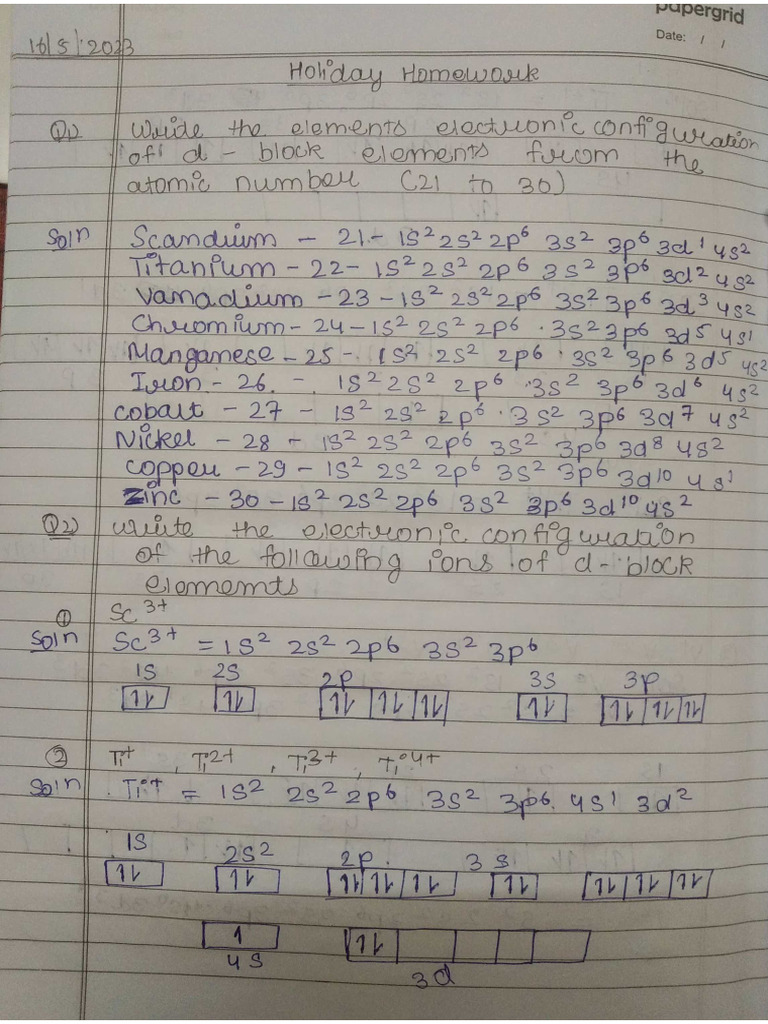 papergrid
Date: / /
16/5/2023
Holiday Homework
Q1) Write the elements electronic configuration
of d - block elements from the
atomic number (21 to 30)
Soln Scandium - 21 - 1s² 2s² 2p⁶ 3s² 3p⁶ 3d¹ 4s²
Titanium - 22 - 1s² 2s² 2p⁶ 3s² 3p⁶ 3d² 4s²
Vanadium - 23 - 1s² 2s² 2p⁶ 3s² 3p⁶ 3d³ 4s²
Chromium - 24 - 1s² 2s² 2p⁶ 3s² 3p⁶ 3d⁵ 4s¹
Manganese - 25 - 1s² 2s² 2p⁶ 3s² 3p⁶ 3d⁵ 4s²
Iron - 26 - 1s² 2s² 2p⁶ 3s² 3p⁶ 3d⁶ 4s²
cobalt - 27 - 1s² 2s² 2p⁶ 3s² 3p⁶ 3d⁷ 4s²
Nickel - 28 - 1s² 2s² 2p⁶ 3s² 3p⁶ 3d⁸ 4s²
copper - 29 - 1s² 2s² 2p⁶ 3s² 3p⁶ 3d¹⁰ 4s¹
Zinc - 30 - 1s² 2s² 2p⁶ 3s² 3p⁶ 3d¹⁰ 4s²
Q2) write the electronic configuration
of the following ions of d - block
elomemts
① Sc³⁺
Soln Sc³⁺ = 1s² 2s² 2p⁶ 3s² 3p⁶
1s 2s 2p 3s 3p
1l 1l 1l 1l 1l 1l 1l 1l 1l
② Ti⁺, Ti²⁺, Ti³⁺, Ti⁴⁺
Soln Ti⁺ = 1s² 2s² 2p⁶ 3s² 3p⁶ 4s¹ 3d²
1s 2s2 2p 3s
1l 1l 1l 1l 1l 1l 1l 1l 1l
1 1l
4s 3d